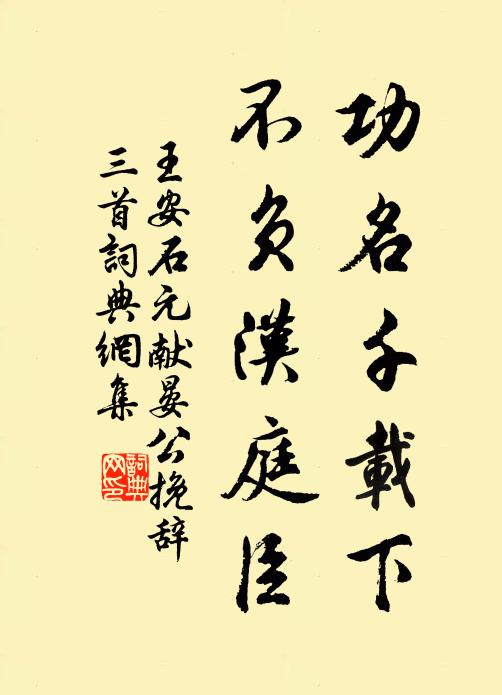 功名千載下
不负漢庭臣
王安石元献晏公挽辞
三首詞典網集
詞典
网印